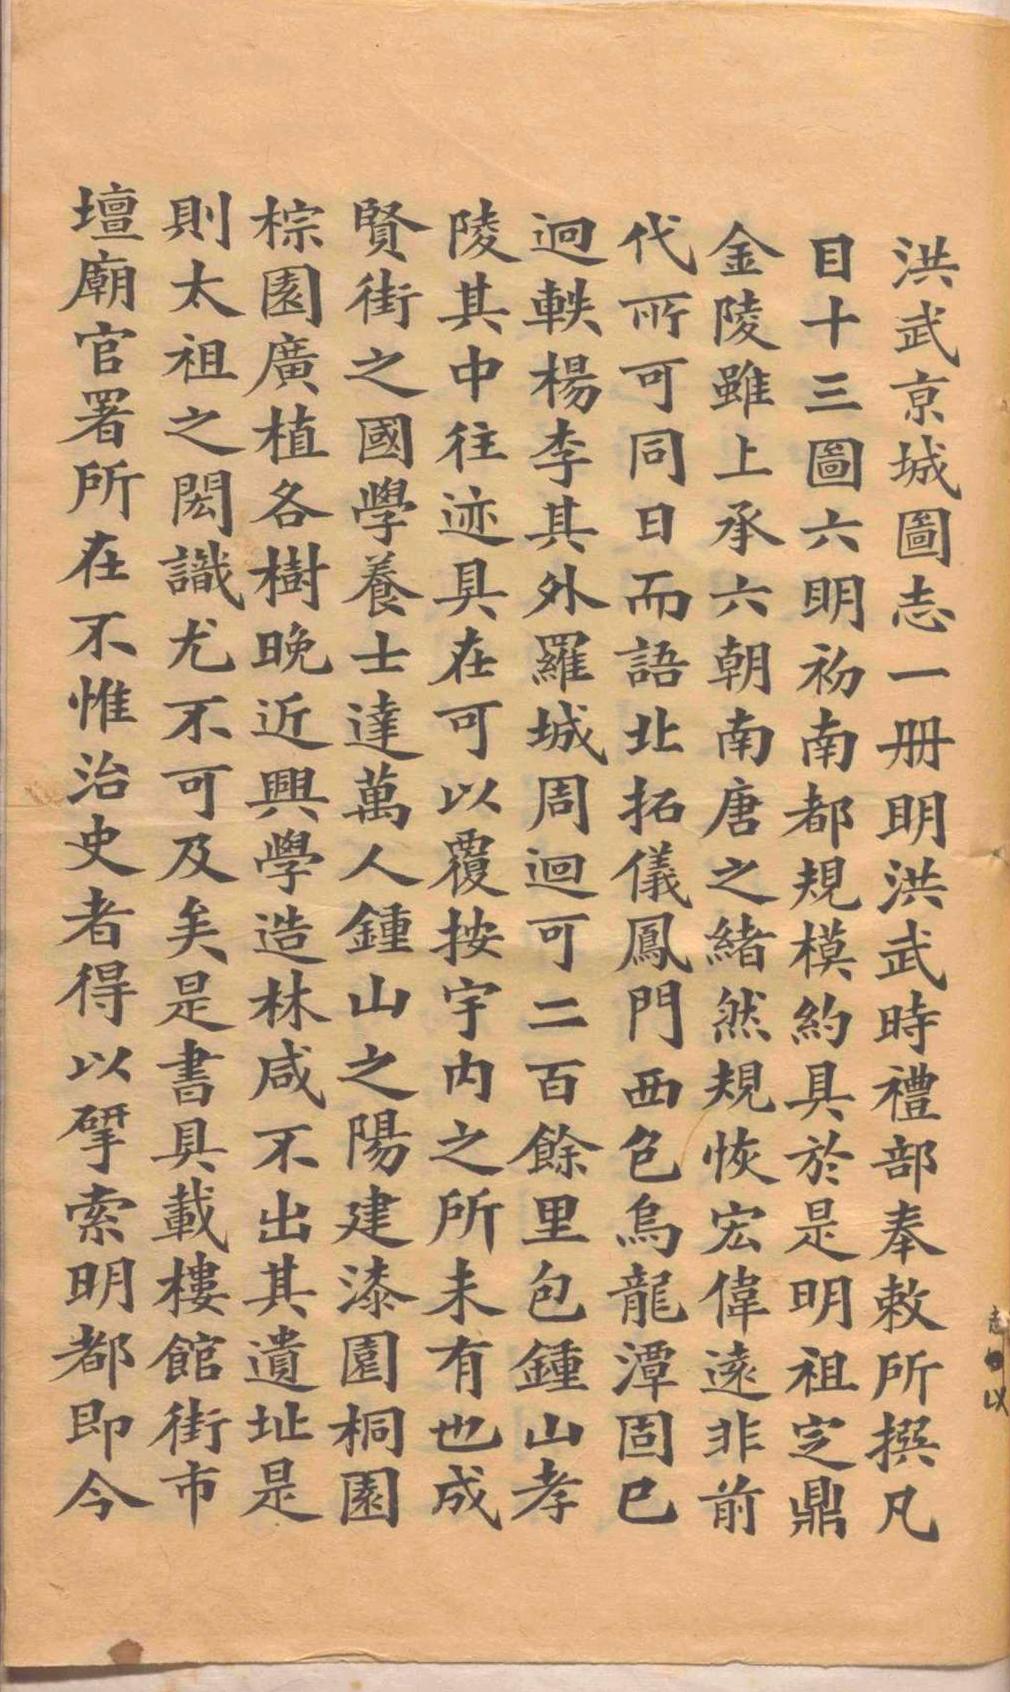 洪武京城圖志一册明洪武時禮部奉敕所撰凡
目十三圖六明初南都規模約具於是明祖定鼎
金陵雖上承六朝南唐之緒然規恢宏偉遠非前
代所可同日而語北拓儀鳳門西包烏龍潭固已
迥軼楊李其外羅城周迴可二百餘里包鍾山孝
陵其中往迹具在可以覆按宇内之所未有也成
賢街之國學養士達萬人鍾山之陽建漆園桐園
棕園廣植各樹晚近興學造林咸不出其遺址是
則太祖之閎識尤不可及矣是書具載樓館街市
壇廟官署所在不惟治史者得以揅索明都即今